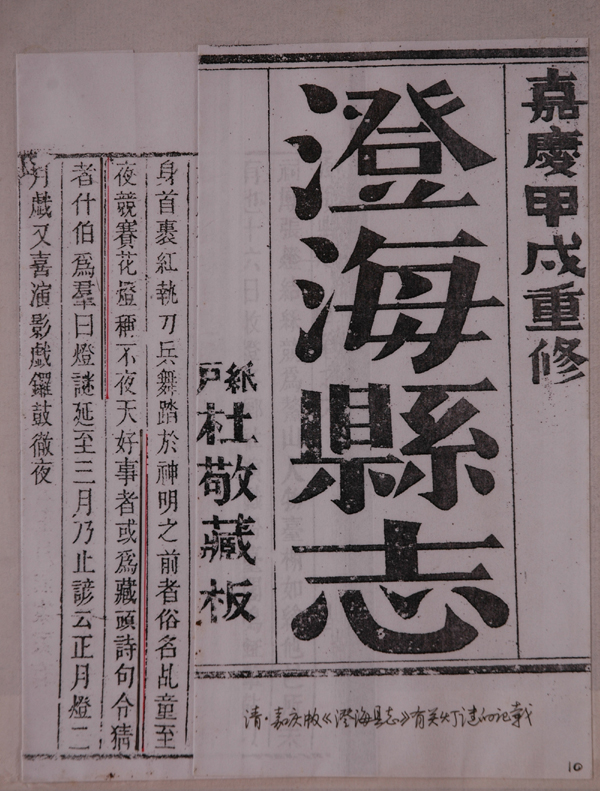 嘉慶甲戌重修
澄海縣志
紙戶
杜敬藏板
清·嘉庆版《澄海县志》有关灯谜的记载
10
身首裹紅執刀兵舞踏於神明之前者俗名乩童至
夜競賽花燈種不夜天好事者或爲藏頭詩句令猜
者什伯爲羣曰燈謎延至三月乃止諺云正月燈二
月戲又喜演影戲鑼鼓徹夜